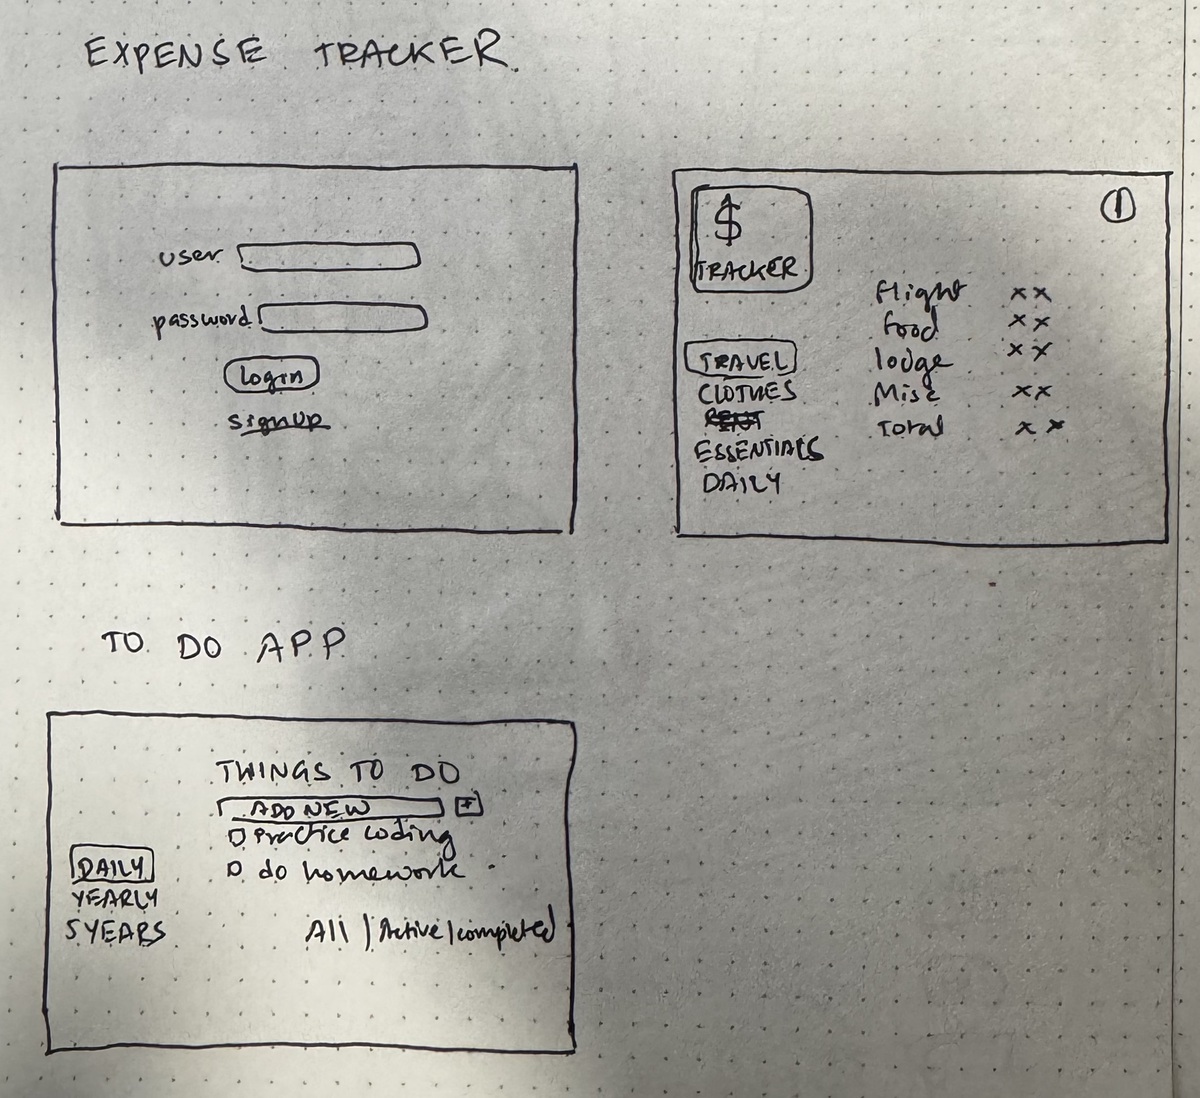 EXPENSE TRACKER
user
password
Login
signup
$
TRACKER
TRAVEL
CLOTHES
ESSENTIALS
DAILY
flight xx
food xx
lodge xx
Misc xx
Total xx
TO DO APP
THINGS TO DO
ADD NEW +
Practice coding
do homework
DAILY
YEARLY
5YEARS
All | Active | completed